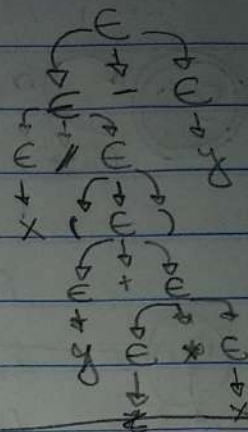 E
E - E
E / E y
x ( E )
E + E
y E * E
x